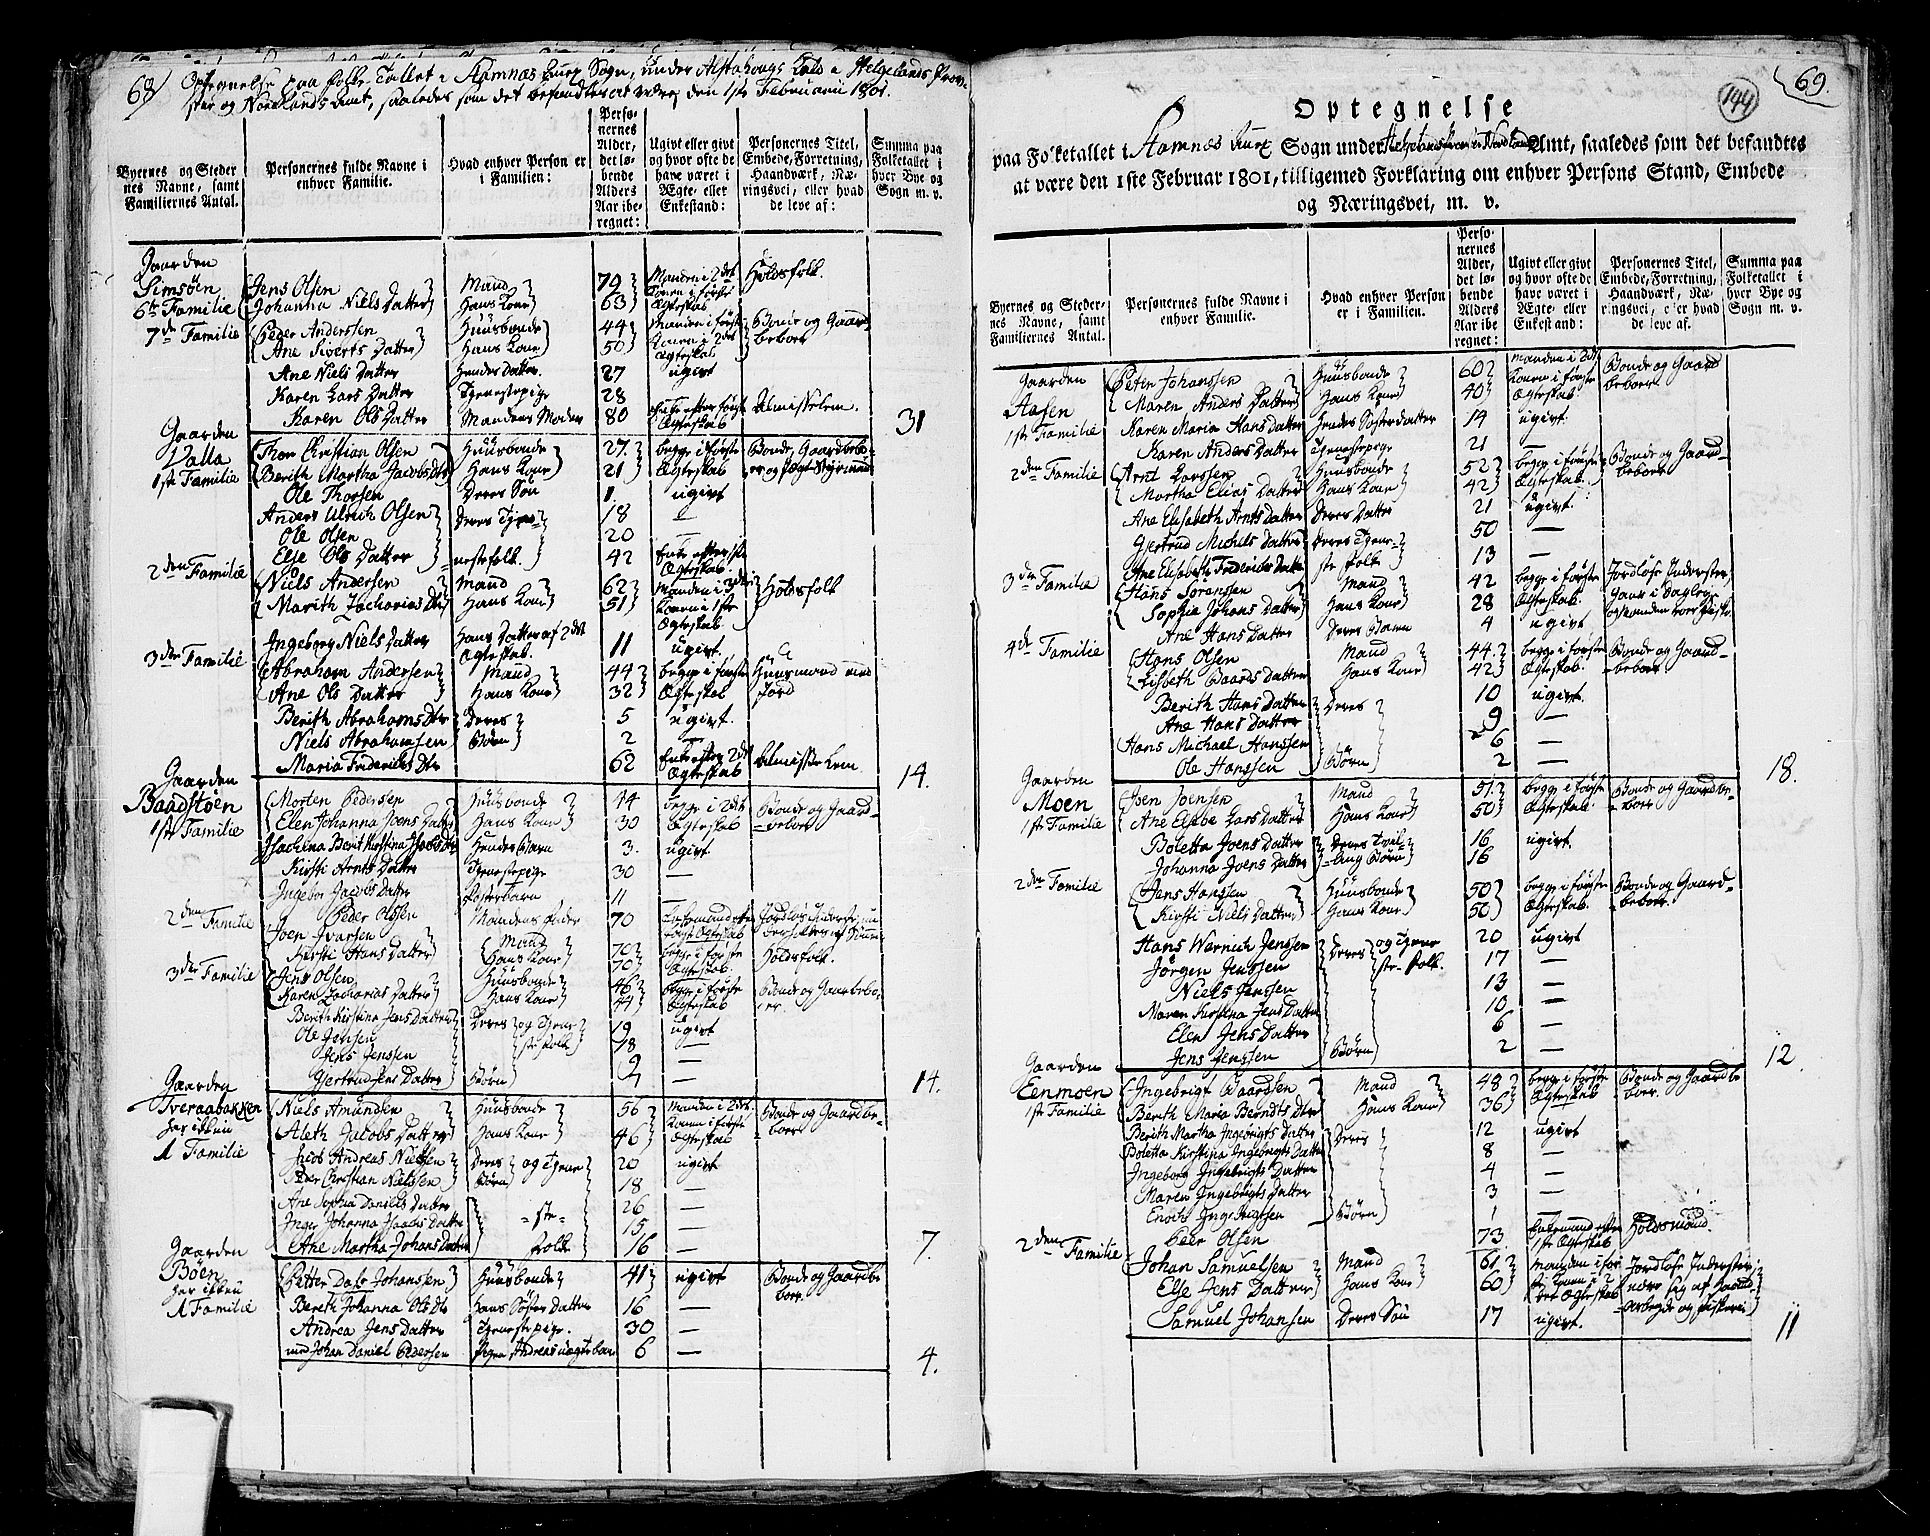 68)
Optegnelse paa Folke Tallet i Stamnæs Sogn, under Alstahougs Kald i Helgelands Prov-
stie og Nordlands Amt, saaledes som det befandtes at være den 1ste Februarii 1801.
Byernes og Steder
nes Navne, samt
Familiernes Antal.
Personernes fulde Navne i
enhver Familie.
Hvad enhver Person er
i Familien:
Perso-
nernes
Alder,
det lø-
bende
Alders
Aar ibe-
regnet:
Ugivt eller givt
og hvor ofte de
have været i
Ægte- eller
Enkestand:
Personernes Titel,
Embede, Forretning,
Haandværk, Næ-
ringsvei, eller hvad
de leve af:
Summa paa
Folketallet i
hver Bye og
Sogn m. v.
Gaarden
Simsöen Jens Olsen Mand 79 Manden i 2det Holdsfolk.
6te Familie Johanna Niels Datter Hans Kone 63 Konen i første Ægteskab
7de Familie Peder Anderssen Huusbonde 44 Manden i først Bonde og Gaard-
Ane Siverts Datter Hans Kone 50 Konen i 2det Ægteskab beboer
Ane Niels Datter Hendes Datter 27 ugivt
Karen Lars Datter Tjenestepige 28
Karen Ols Datter Mandens Moder 80 Enke efter først Ægteskab Almisselem. 31
Gaarden
Valla Thor Christian Olsen Huusbonde 27. begge i første Bonde, Gaardbebo-
1ste Familie Berith Martha Jacobs Dtr Hans Kone 21 Ægteskab
Ole Thorsen Deres Søn 1. ugivt
Anders Ulrich Olsen Deres Tjene- 18 —
Ole Olsen 20 —
Else Ols Datter nestefolk. 42 Enke efter 1ste Ægteskab
2den Familie Niels Andersen Mand 62 Manden i 3die Holdsfolk
Marith Zacharias Dtr Hans Kone 51 Konen i 1ste Ægteskab
Ingeborg Niels Datter Hans Datter af 2det Ægteskab. 11 ugivt.
3die Familie Abraham Andersen Mand 44 begge i første Huusmand med
Ane Ols Datter Hans Kone 32 Ægteskab Jord
Berith Abrahams Dtr Deres 5 ugivt.
Niels Abrahamsen Børn 2 —
Maria Friderichs Dtr 62 Enke efter 2det Ægteskab Almisse Lem 14.
Gaarden
Baadstöen Morten Pedersen Huusbonde 44 begge i 2det Bonde og Gaard-
1ste Familie Elen Johanna Joens Datter Hans Kone 30 Ægteskab beboer
Berit Kirstina Hendes Barn 3. ugivt
Kirsti Arnts Datter Tjenestepige 30 —
Ingebor Jacobs Datter Fosterbarn 11 —
Peder Olssen Mandens Fader 70
2den Familie Joen Ivarsen Mand 70 begge i første Holdsfolk.
Kirsti Hans Datter Hans Kone 70 Ægteskab
3die Familie Jens Olsen Huusbonde 46 begge i første Bonde og Gaardbebo-
Karen Zacharias Datter Hans Kone 44 Ægteskab er.
Berith Kirstina Jens Datter Deres og Tjene- 19 ugivt
Ole Jensen ste Folk 18 —
Jens Jenssen 9 —
Gjertrud Jens Datter Børn 7 — 14.
Gaarden
Tveraabakken Niels Amundsen Huusbonde 56 Manden i 2det Bonde og Gaardbe-
her ikkun Aleth Jacobs Datter Hans Kone 46 Konen i første Ægteskab boer
1 Familie Jacob Andreas Nielsen Deres og Tjene- 20 ugivt
Peder Christian Nielssen Børn 18 —
Ane Sophia Daniels Datter 26 —
Inger Johanna Jacobs Datter -ste- 15 —
Ane Martha Johans Datter Folk 16 — 7.
Gaarden
Böen Petter Dass Johanssen Huusbonde 41 ugivt Bonde og Gaardbe
her ikkun boer.
1 Familie Bereth Johanna Ols Dtr Hans Söster Datter 16 —
Andrea Jens Datter Tjenestepige. 30 —
med Johan Daniel Pedersen Pigen Andreas uægte barn 6 — 4.
144
69.
Optegnelse
paa Folketallet i Stamnæs Sogn under Amt, saaledes som det befandtes
at være den 1ste Februar 1801, tilligemed Forklaring om enhver Persons Stand, Embede
og Næringsvei, m. v.
Byernes og Steder-
nes Navne, samt
Familiernes Antal.
Personernes fulde Navne i
enhver Familie.
Hvad enhver Person
er i Familien.
Perso-
nernes
Alder,
det lø-
bende
Alders
Aar ibe-
regnet:
Ugivt eller givt
og hvor ofte de
have været i
Ægte- eller
Enkestand:
Personernes Titel,
Embede, Forretning,
Haandværk, Næ-
ringsvei, eller hvad
de leve af.
Summa paa
Folketallet i
hver Bye og
Sogn m. v.
Gaarden Peter Johanssen Huusbonde 60 Manden i 2det Bonde og Gaard
Aasen Maren Anders Datter Hans Kone 40 Konen i første Ægteskab beboer
1ste Familie Karen Maria Hans Datter Hendes Søsterdatter 14 ugivt
Karen Anders Datter Tjenestepige 21
2den Familie Arnt Larssen Huusbonde 52 begge i første Bonde og Gaard-
Martha Elias Datter Hans Kone 42 Ægteskab beboer
Ane Elisabeth Arnts Datter Deres Datter 21 ugivt.
Gjertrud Michels Datter Deres Tjene- 50 —
Ane Elisabeth Friderichs Datter ste Folk 13 —
3die Familie Hans Sörensen Mand 42 begge i første Jordløse Inderster,
Sophie Johans Datter Hans Kone 28 Ægteskab.
Ane Hans Datter Deres Barn 4 ugivt
4de Familie Hans Olsen Mand 44. begge i første Bonde og Gaard-
Lisbeth Baards Datter Hans Kone 42 Ægteskab. beboer
Berith Hans Datter Deres 10 ugivt.
Ane Hans Datter 9 —
Hans Michael Hanssen 6 —
Ole Hanssen Børn 2 — 18.
Gaarden
Moen Joen Joensen Mand 51. begge i første Bonde og Gaardbe-
1ste Familie Ane Elsbe Lars Datter Hans Kone 50 Ægteskab. boer
Boletta Joens Datter Deres Tvil- 16 ugivt.
Johanna Joens Datter ling Børn 16
2den Familie Jens Hanssen Huusbonde 50 begge i første Bonde og Gaard-
Kirsti Niels Datter Hans Kone 50 Ægteskab. beboer.
Hans Wernich Jenssen Deres og Tjene 20 ugivt
Jörgen Jenssen ste Folk. 17 —
Niels Jenssen 13 —
Maren Kirstina Jens Datter 10 —
Elen Jens Datter 6 —
Jens Jenssen Börn 2 — 12.
Gaarden
Eenmoen Ingebrigt Baardsen Mand 48 begge i første Bonde og Gaardbe
1ste Familie Berith Maria Berndts Dtr Hans Kone 36 Ægteskab boer.
Berith Martha Ingebrigts Datter Deres 12 ugivt
Boletta Kirstina Ingebrigts Datter 8 —
Ingeborg Ingebrigts Datter 4 —
Maren Ingebrigts Datter 3 —
Enoch Ingebrigtsen Börn 1 —
Peer Olsen 73 Enkemand efter 1ste Ægteskab Holdsmand.
2den Familie Johan Samuelsen Mand 61. Manden i før Jordløse Inderster
Else Jens Datter Hans Kone 60
Samuel Johansen Deres Søn 17 ugivt. 11